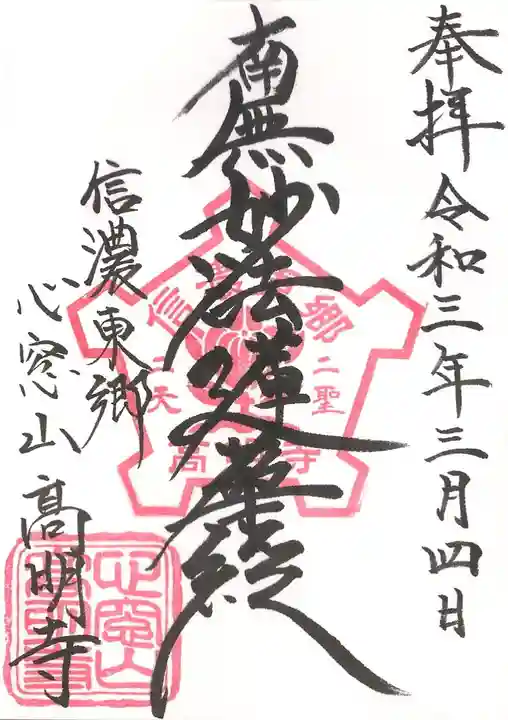 奉拝 令和三年三月四日
南無妙法蓮華経
信濃東郷
心窓山 高明寺
信濃東郷
二聖
二天
高明寺